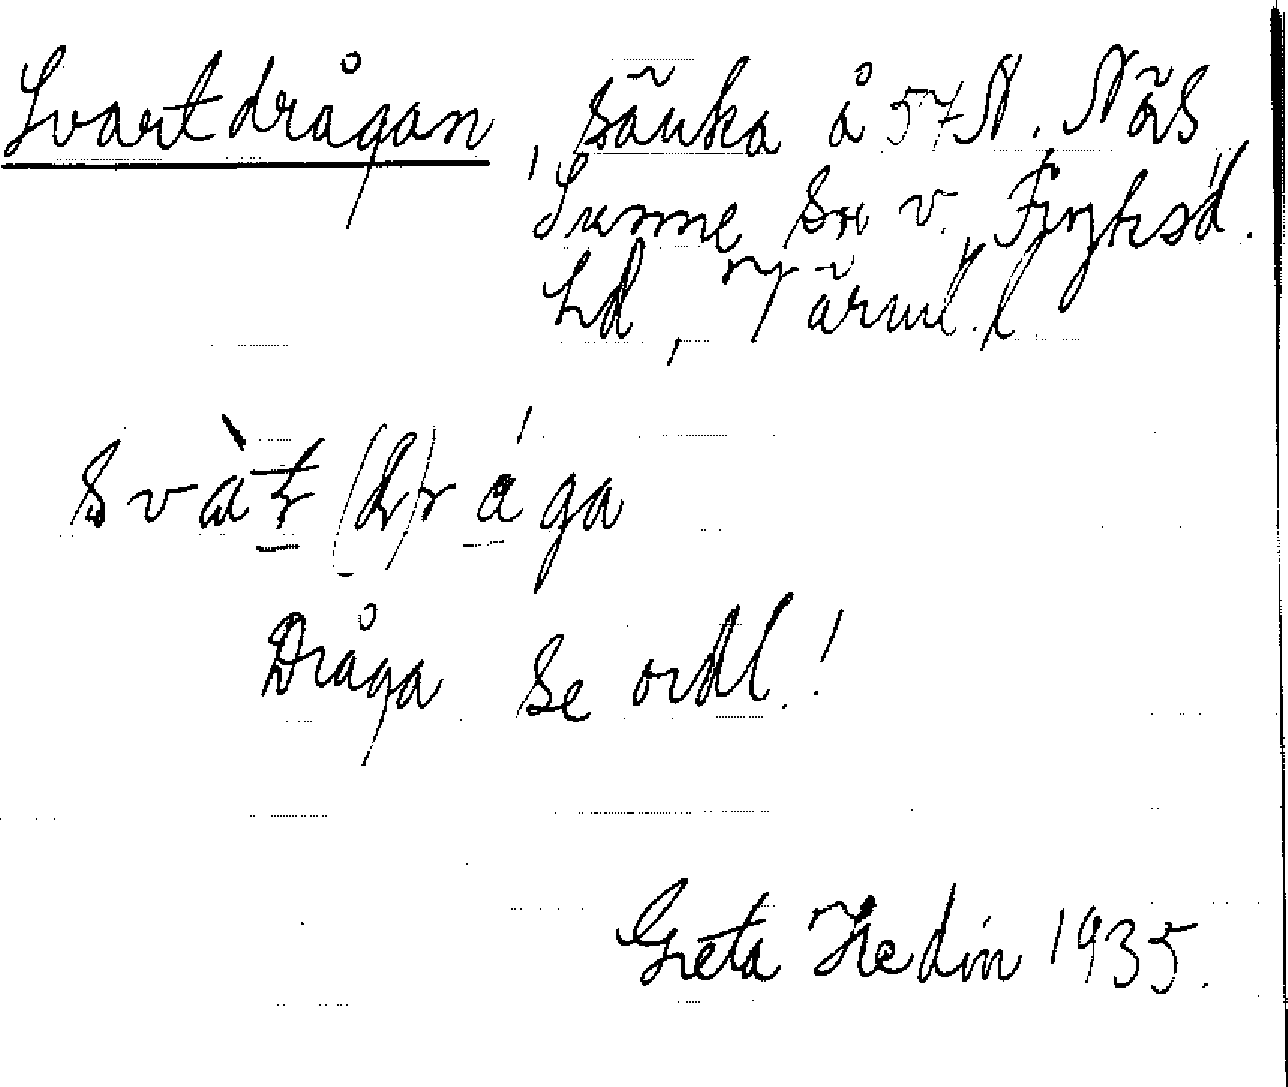 Svartdrågan, sänka å 57 N. Näs
Sunne sn v. Fryksd.
hd, Värml. l
svàt̠ (d)r á̠ ga
Dråga se ordl.!
Greta Hedin 1935.